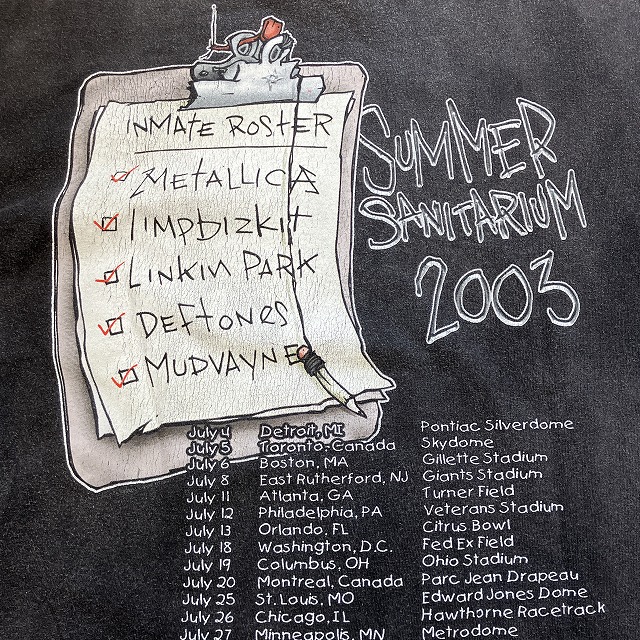 INMATE ROSTER
METALLICA
limpbizkit
LINKIN PARK
DEFTONES
MUDVAYNE
SUMMER
SANITARIUM
2003
July 4 Detroit, MI Pontiac Silverdome
July 5 Toronto, Canada Skydome
July 6 Boston, MA Gillette Stadium
July 8 East Rutherford, NJ Giants Stadium
July 11 Atlanta, GA Turner Field
July 12 Philadelphia, PA Veterans Stadium
July 13 Orlando, FL Citrus Bowl
July 18 Washington, D.C. Fed Ex Field
July 19 Columbus, OH Ohio Stadium
July 20 Montreal, Canada Parc Jean Drapeau
July 25 St. Louis, MO Edward Jones Dome
July 26 Chicago, IL Hawthorne Racetrack
July 27 Minneapolis, MN Metrodome